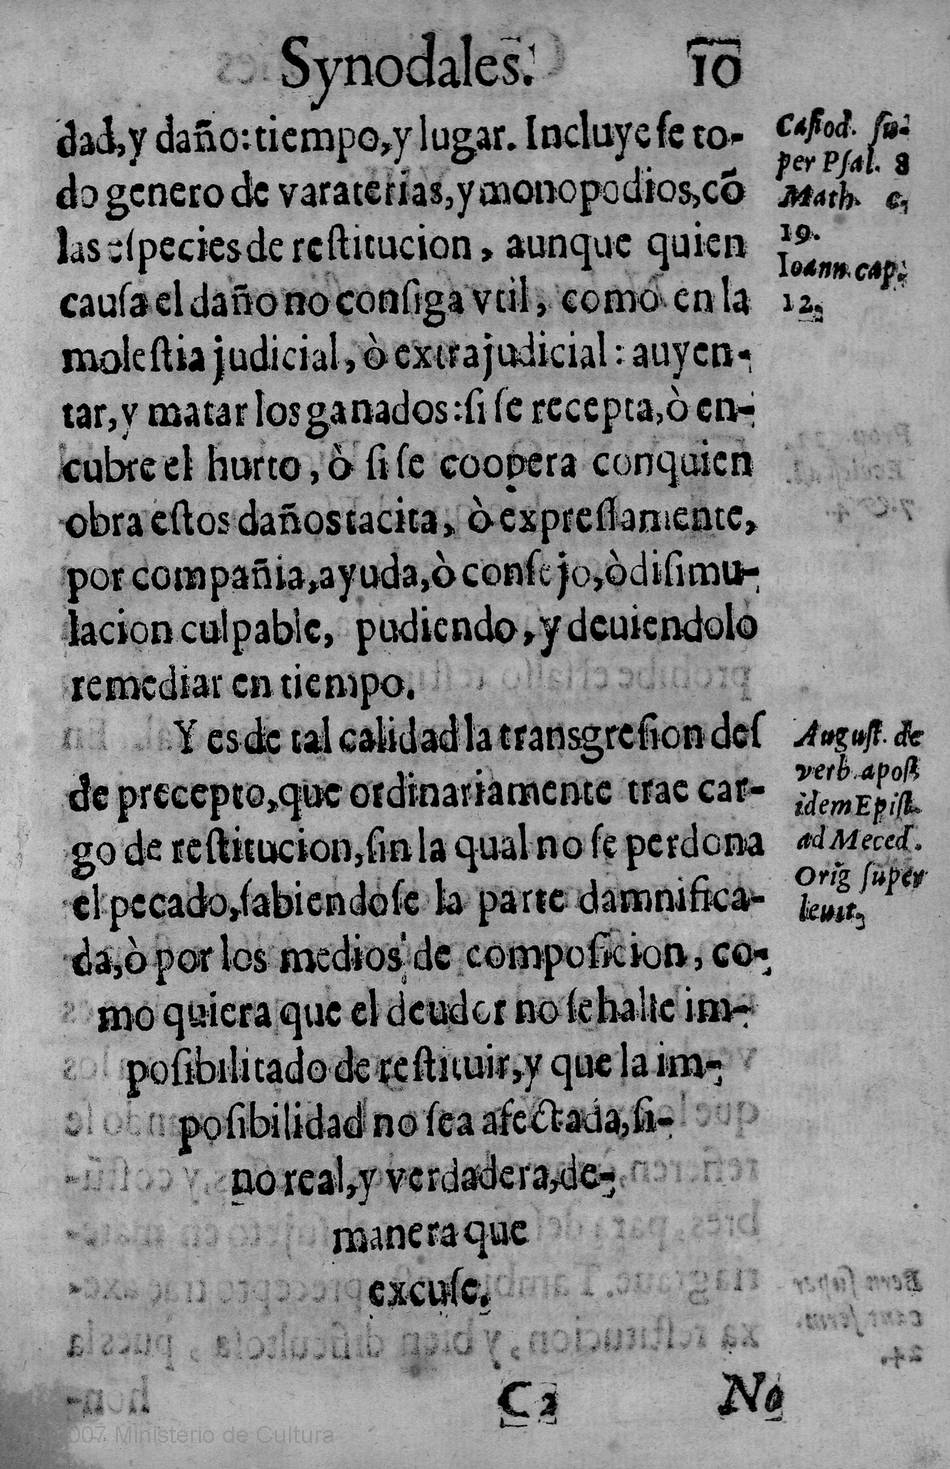 Synodales. 10
dad, y daño: tiempo, y lugar. Incluyese to-
do genero de varaterias, y monopodios, cõ
las especies de restitucion, aunque quien
causa el daño no consiga vtil, como en la
molestia judicial, ò extrajudicial: auyen-
tar, y matar los ganados: si se recepta, ò en-
cubre el hurto, ò si se coopera conquien
obra estos daños tacita, ò expressamente,
por compañia, ayuda, ò consejo, ò disimu-
lacion culpable, pudiendo, y deuiendolo
remediar en tiempo.
Y es de tal calidad la transgresion des
de precepto, que ordinariamente trae car-
go de restitucion, sin la qual no se perdona
el pecado, sabiendose la parte damnifica-
da, ò por los medios de composicion, co-
mo quiera que el deudor no se halle im-
posibilitado de restituir, y que la im-
posibilidad no sea afectada, si-
no real, y verdadera, de-
manera que
excuse.
Casiod. su-
per Psal. 8
Math. c.
19.
Ioann. cap.
12.
August. de
verb. apost
idem Epist.
ad Meced.
Orig super
leuit.
C2 No
2007 Ministerio de Cultura